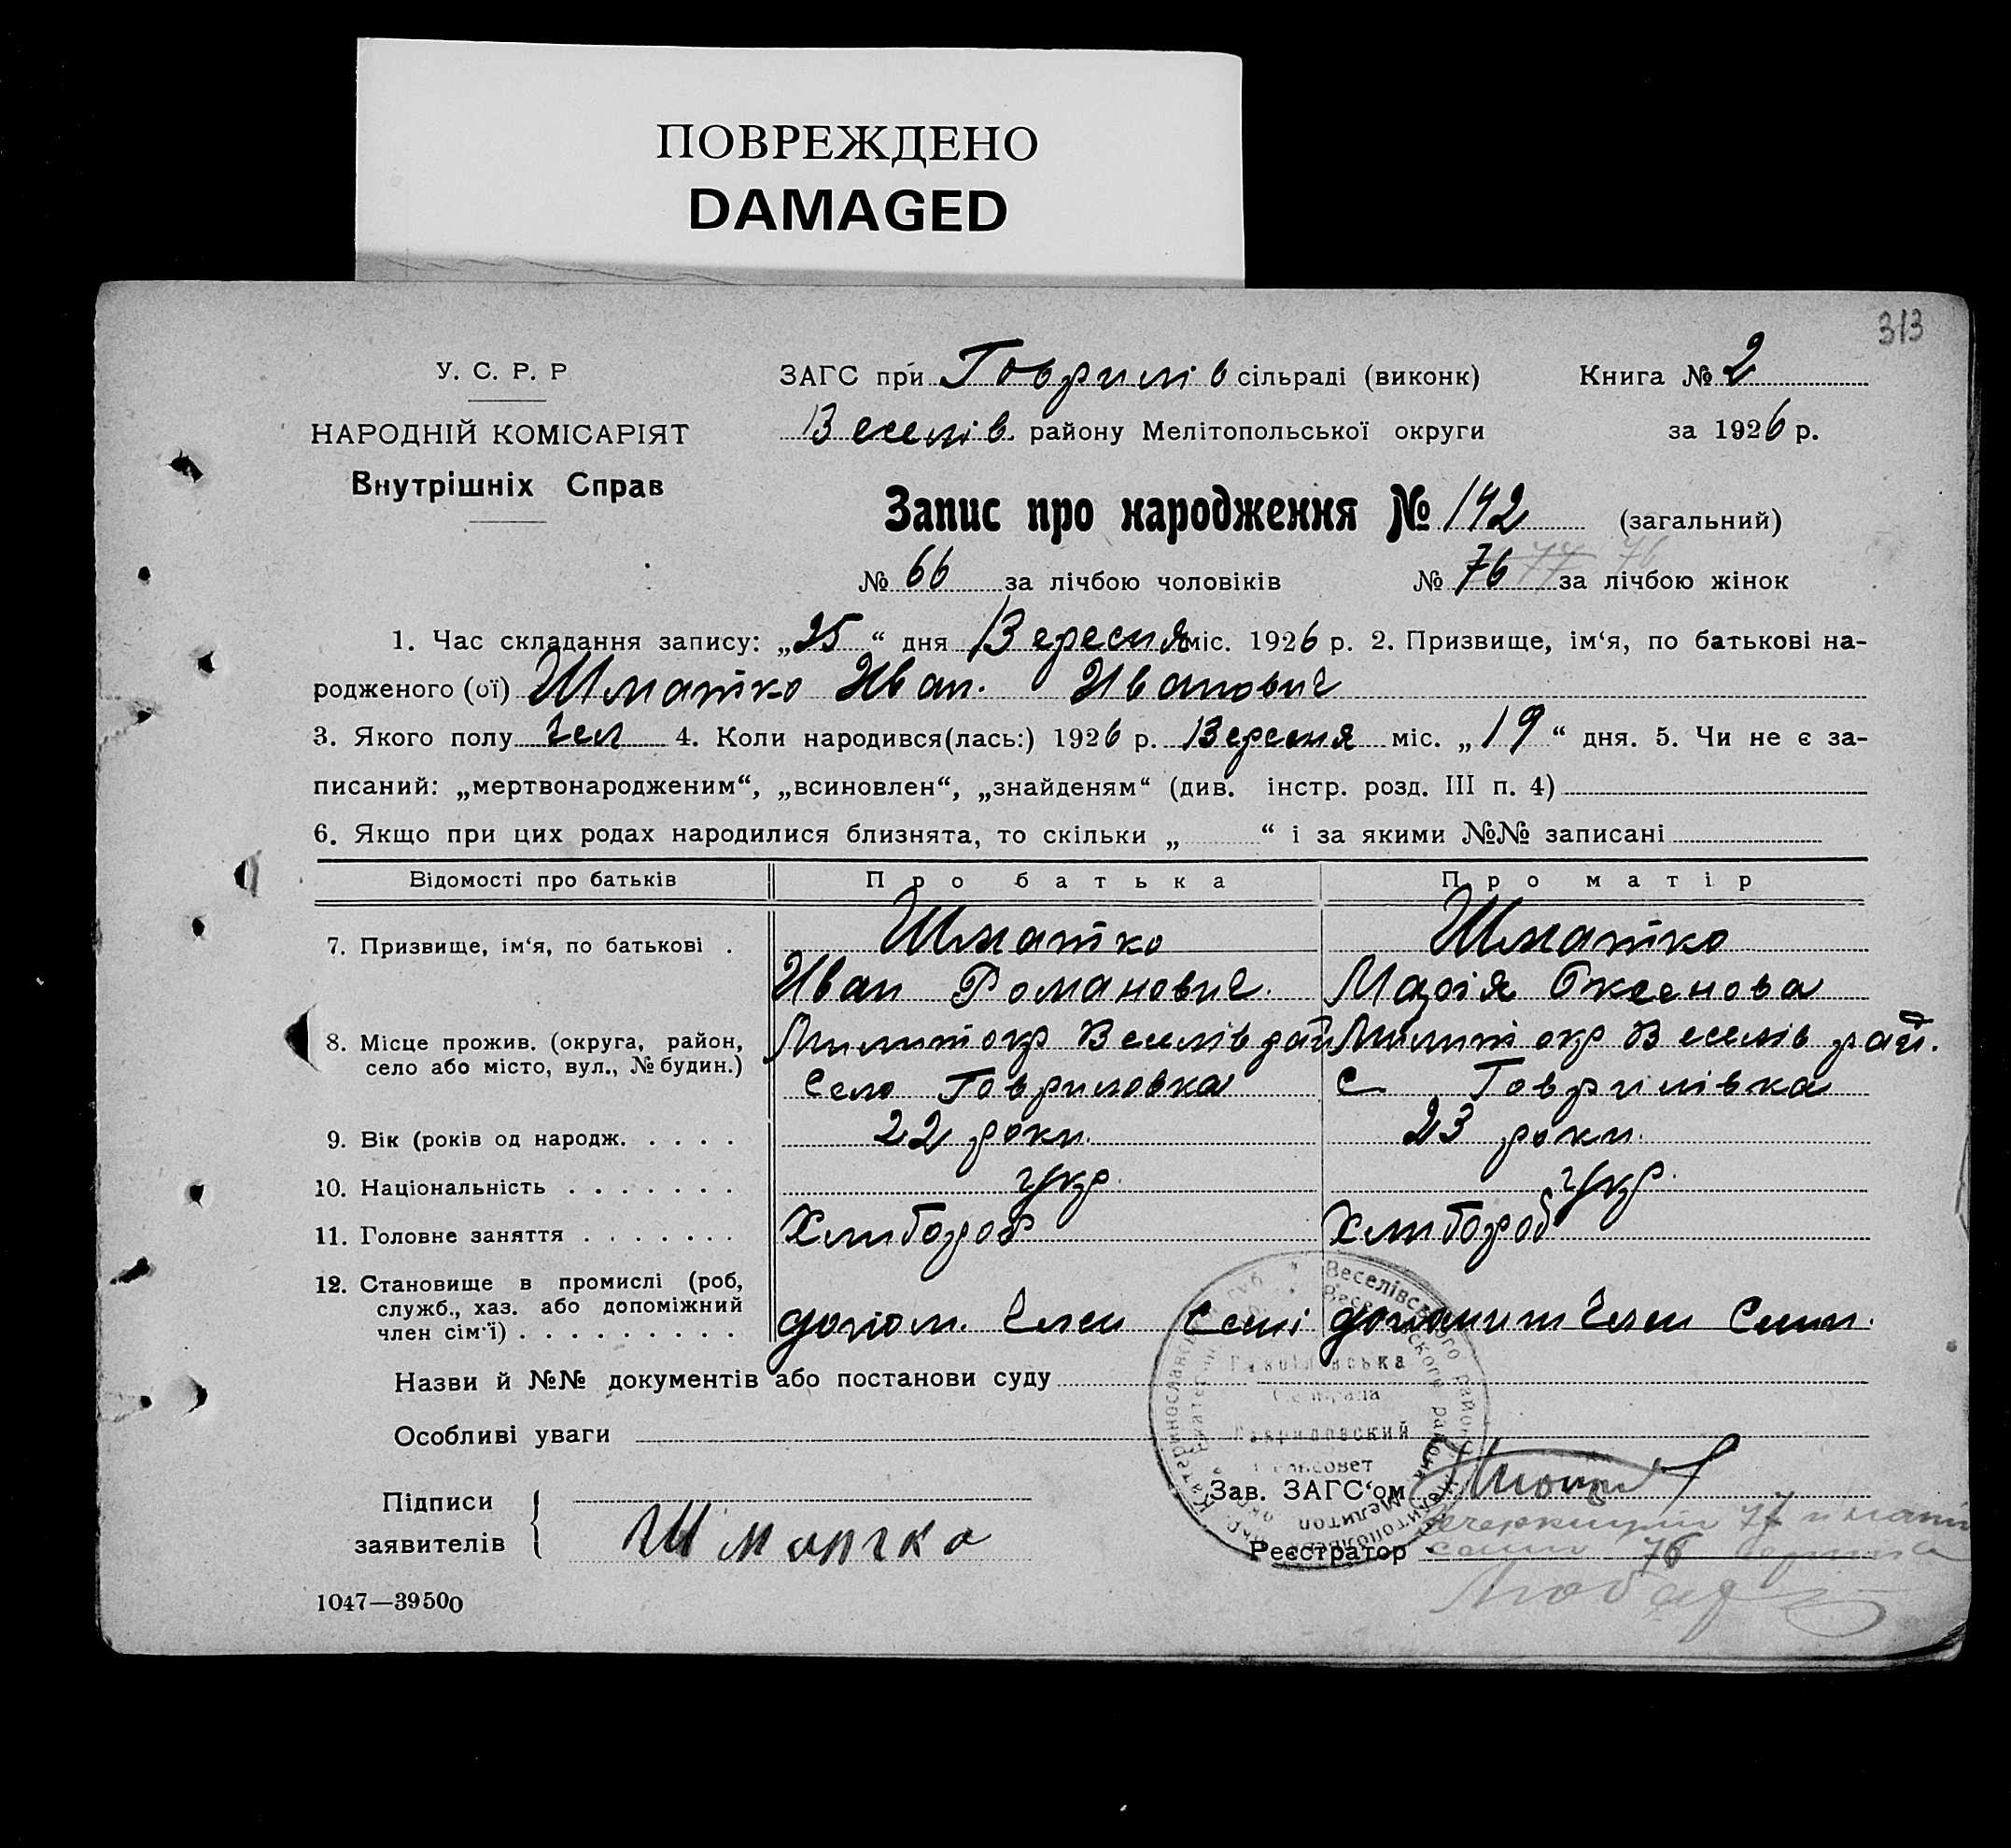 ПОВРЕЖДЕНО
DAMAGED
313
У. С. Р. Р
НАРОДНІЙ КОМІСАРІЯТ
Внутрішніх Справ
ЗАГС при Говрилів сільраді (виконк) Книга № 2
Веселів. району Мелітопольської округи за 1926 р.
Запис про народження № 142 (загальний)
№ 66 за лічбою чоловіків № 76 77 76 за лічбою жінок
1. Час складання запису: „25“ дня Вересня міс. 1926 р. 2. Призвище, ім‘я, по батькові на-
родженого (ої) Шматко Иван. Иванович
3. Якого полу чел 4. Коли народився(лась:) 1926 р. Вересня міс. „19“ дня. 5. Чи не є за-
писаний: „мертвонародженим“, „всиновлен“, „знайденям“ (див. інстр. розд. III п. 4)
6. Якщо при цих родах народилися близнята, то скільки „ “ і за якими №№ записані
Відомості про батьків Про батька Про матір
7. Призвище, ім‘я, по батькові . Шматко Шматко
Иван Романович. Марія Оксенова
8. Місце прожив. (округа, район, Милит окр Веселів рай Милит окр Веселів рай.
село або місто, вул., № будин.) Село Говриловка С Говрилівка
9. Вік (років од народж. . . . . 22 роки. 23 роки.
10. Національність . . . . . . . укр. укр.
11. Головне заняття . . . . . . . Хлибороб Хлибороб
12. Становище в промислі (роб,
служб., хаз. або допоміжний
член сім‘ї) . . . . . . . . . допом. член Семі допомит член Семи.
Назви й №№ документів або постанови суду
Особливі уваги
Підписи
заявителів Шматко
Зав. ЗАГС‘ом
Реєстратор
77
76
1047—39500
Веселівського району
Веселовского района
Гаврилівська
Сельрада
Гавриловский
сельсовет